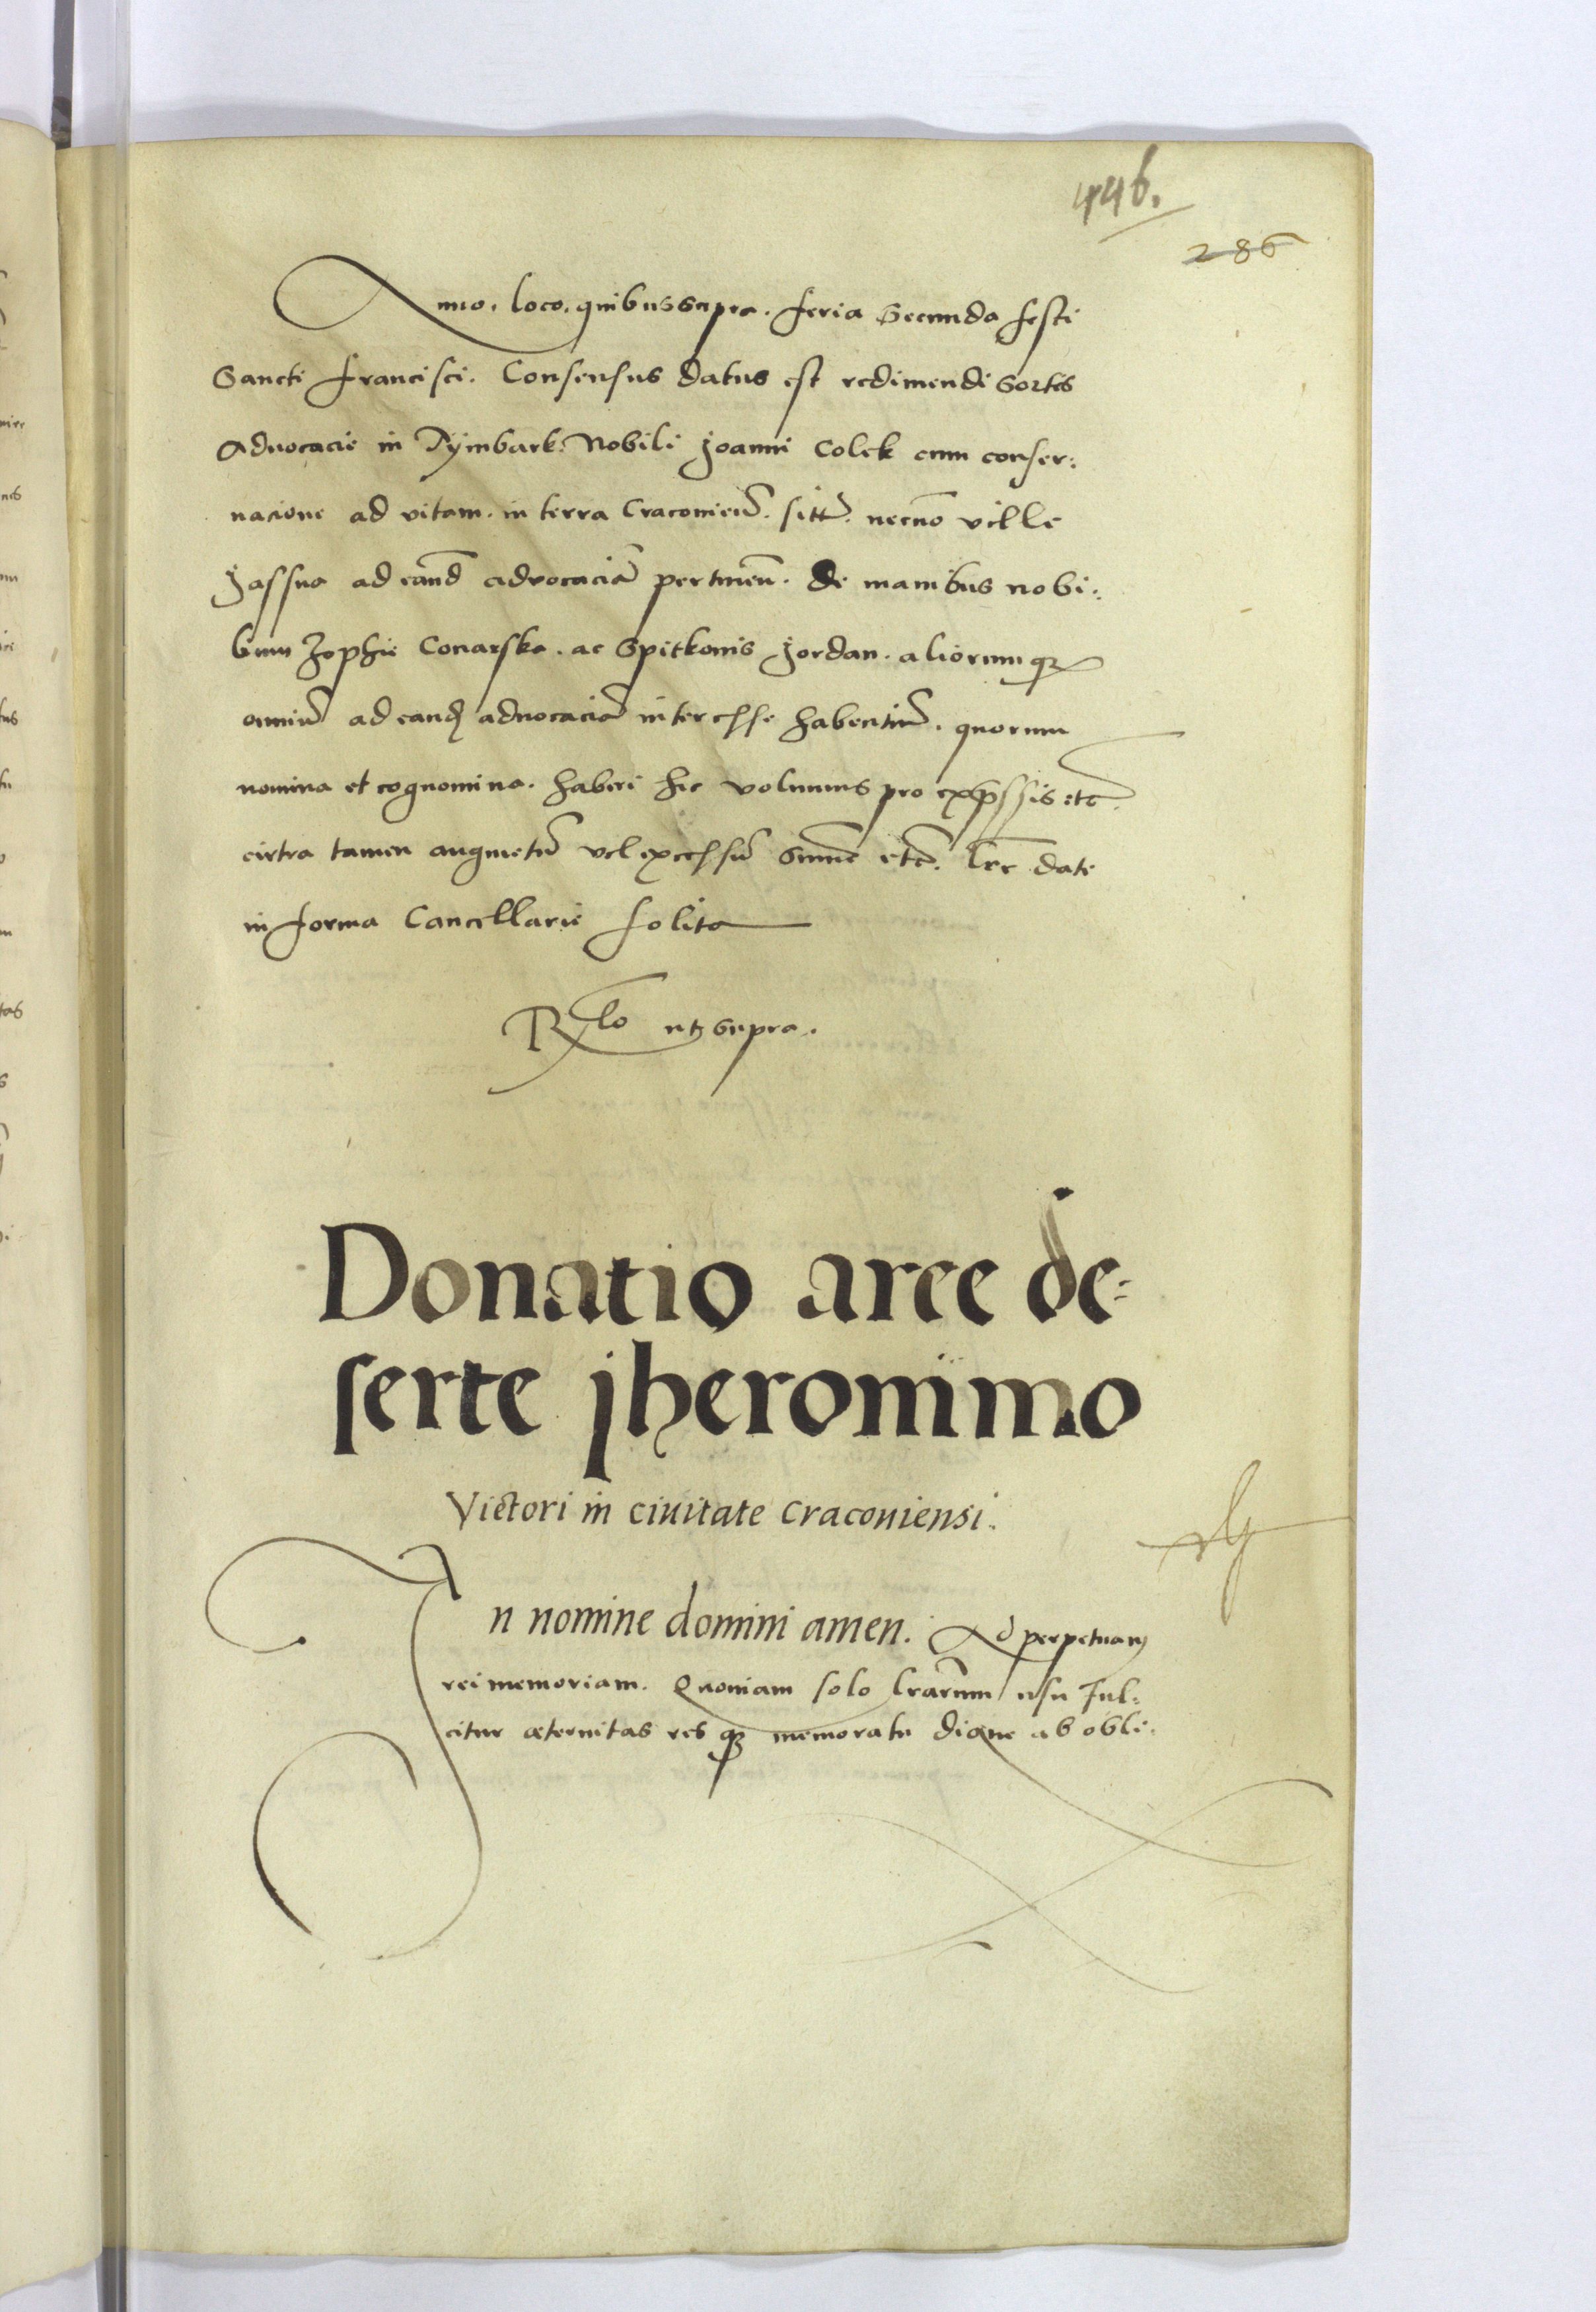 446.
286
Anno. loco. quibus supra. feria Secunda festi
Sancti francisci. Consensus datus est redimendi Sortes
Aduocacie in Tÿmbark. Nobili Joanni Colek cum conser:
uacione ad vitam. in terra Cracouień. sitt̄. necnō ville
Jassna ad eand̄ advocaciā pertineñ. de manibus nobi:
lium Zophie Conarska. ac Spitkonis Jordan. aliorumqꝫ
omniū ad eand aduocaciā interesse habentiū. quorum
nomina et cognomina. haberi hic volumus pro exp̄ssis etc.
citra tamen augmētū vel excessū Summe etc. Lr̄e date
in forma Cancellarie solita
Rlo utsupra.
Donatio aree de:
serte jheronimo
Victori in ciuitate Cracouiensi.
In nomine domini amen. Ad perpetuam
rei memoriam. Quoniam solo Lr̄arum usu ful:
citur æternitas res qꝫ memoratu digne ab obli: